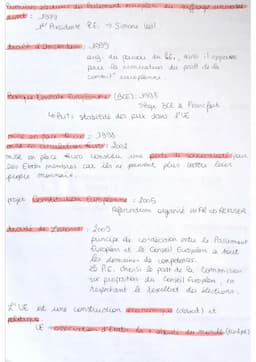 Premières élections du Parlement européen au suffrage universel
direct : 1979
1ère Présidente P.E. → Simone Veil
traité d'Amsterdam : 1999
aug. du pouvoir du P.E., ainsi il approuve
pour la nomination du psdt de la
commit° européenne
Banque Centrale Européenne (BCE) : 1998
Siège BCE à Francfort
↳ But : stabilité des prix dans l'UE
mise en place euro : 1999
mise en circulation euro : 2002
mise en place euro constitue une perte de souveraineté pour
les Etats membres car ils ne peuvent plus battre leur
propre monnaie.
projet Constitution Européenne : 2005
Référendum organisé en FR → REFUSER
traité de Lisbonne : 2009
principe de codécision entre le Parlement
Européen et le Conseil Européen ds tout
les domaines de compétences.
Le P.E. choisi le psdt de la Commission
sur proposition du Conseil Européen, en
respectant le résultat des élections.
L'UE est une construction économique (début) et
politique
UE →